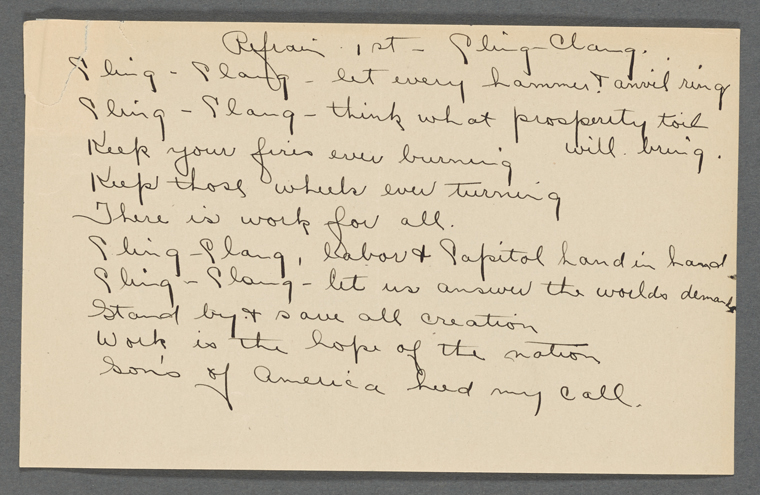 Refrain 1st - Cling-Clang.
Cling - Clang - let every hammer & anvil ring
Cling - Clang - think what prosperity toil
will bring.
Keep your fires ever burning
Keep those wheels ever turning
There is work for all.
Cling-Clang, labor & Capitol hand in hand
Cling - Clang - let us answer the worlds demands
Stand by & save all creation
Work is the hope of the nation
Son's of America heed my call.